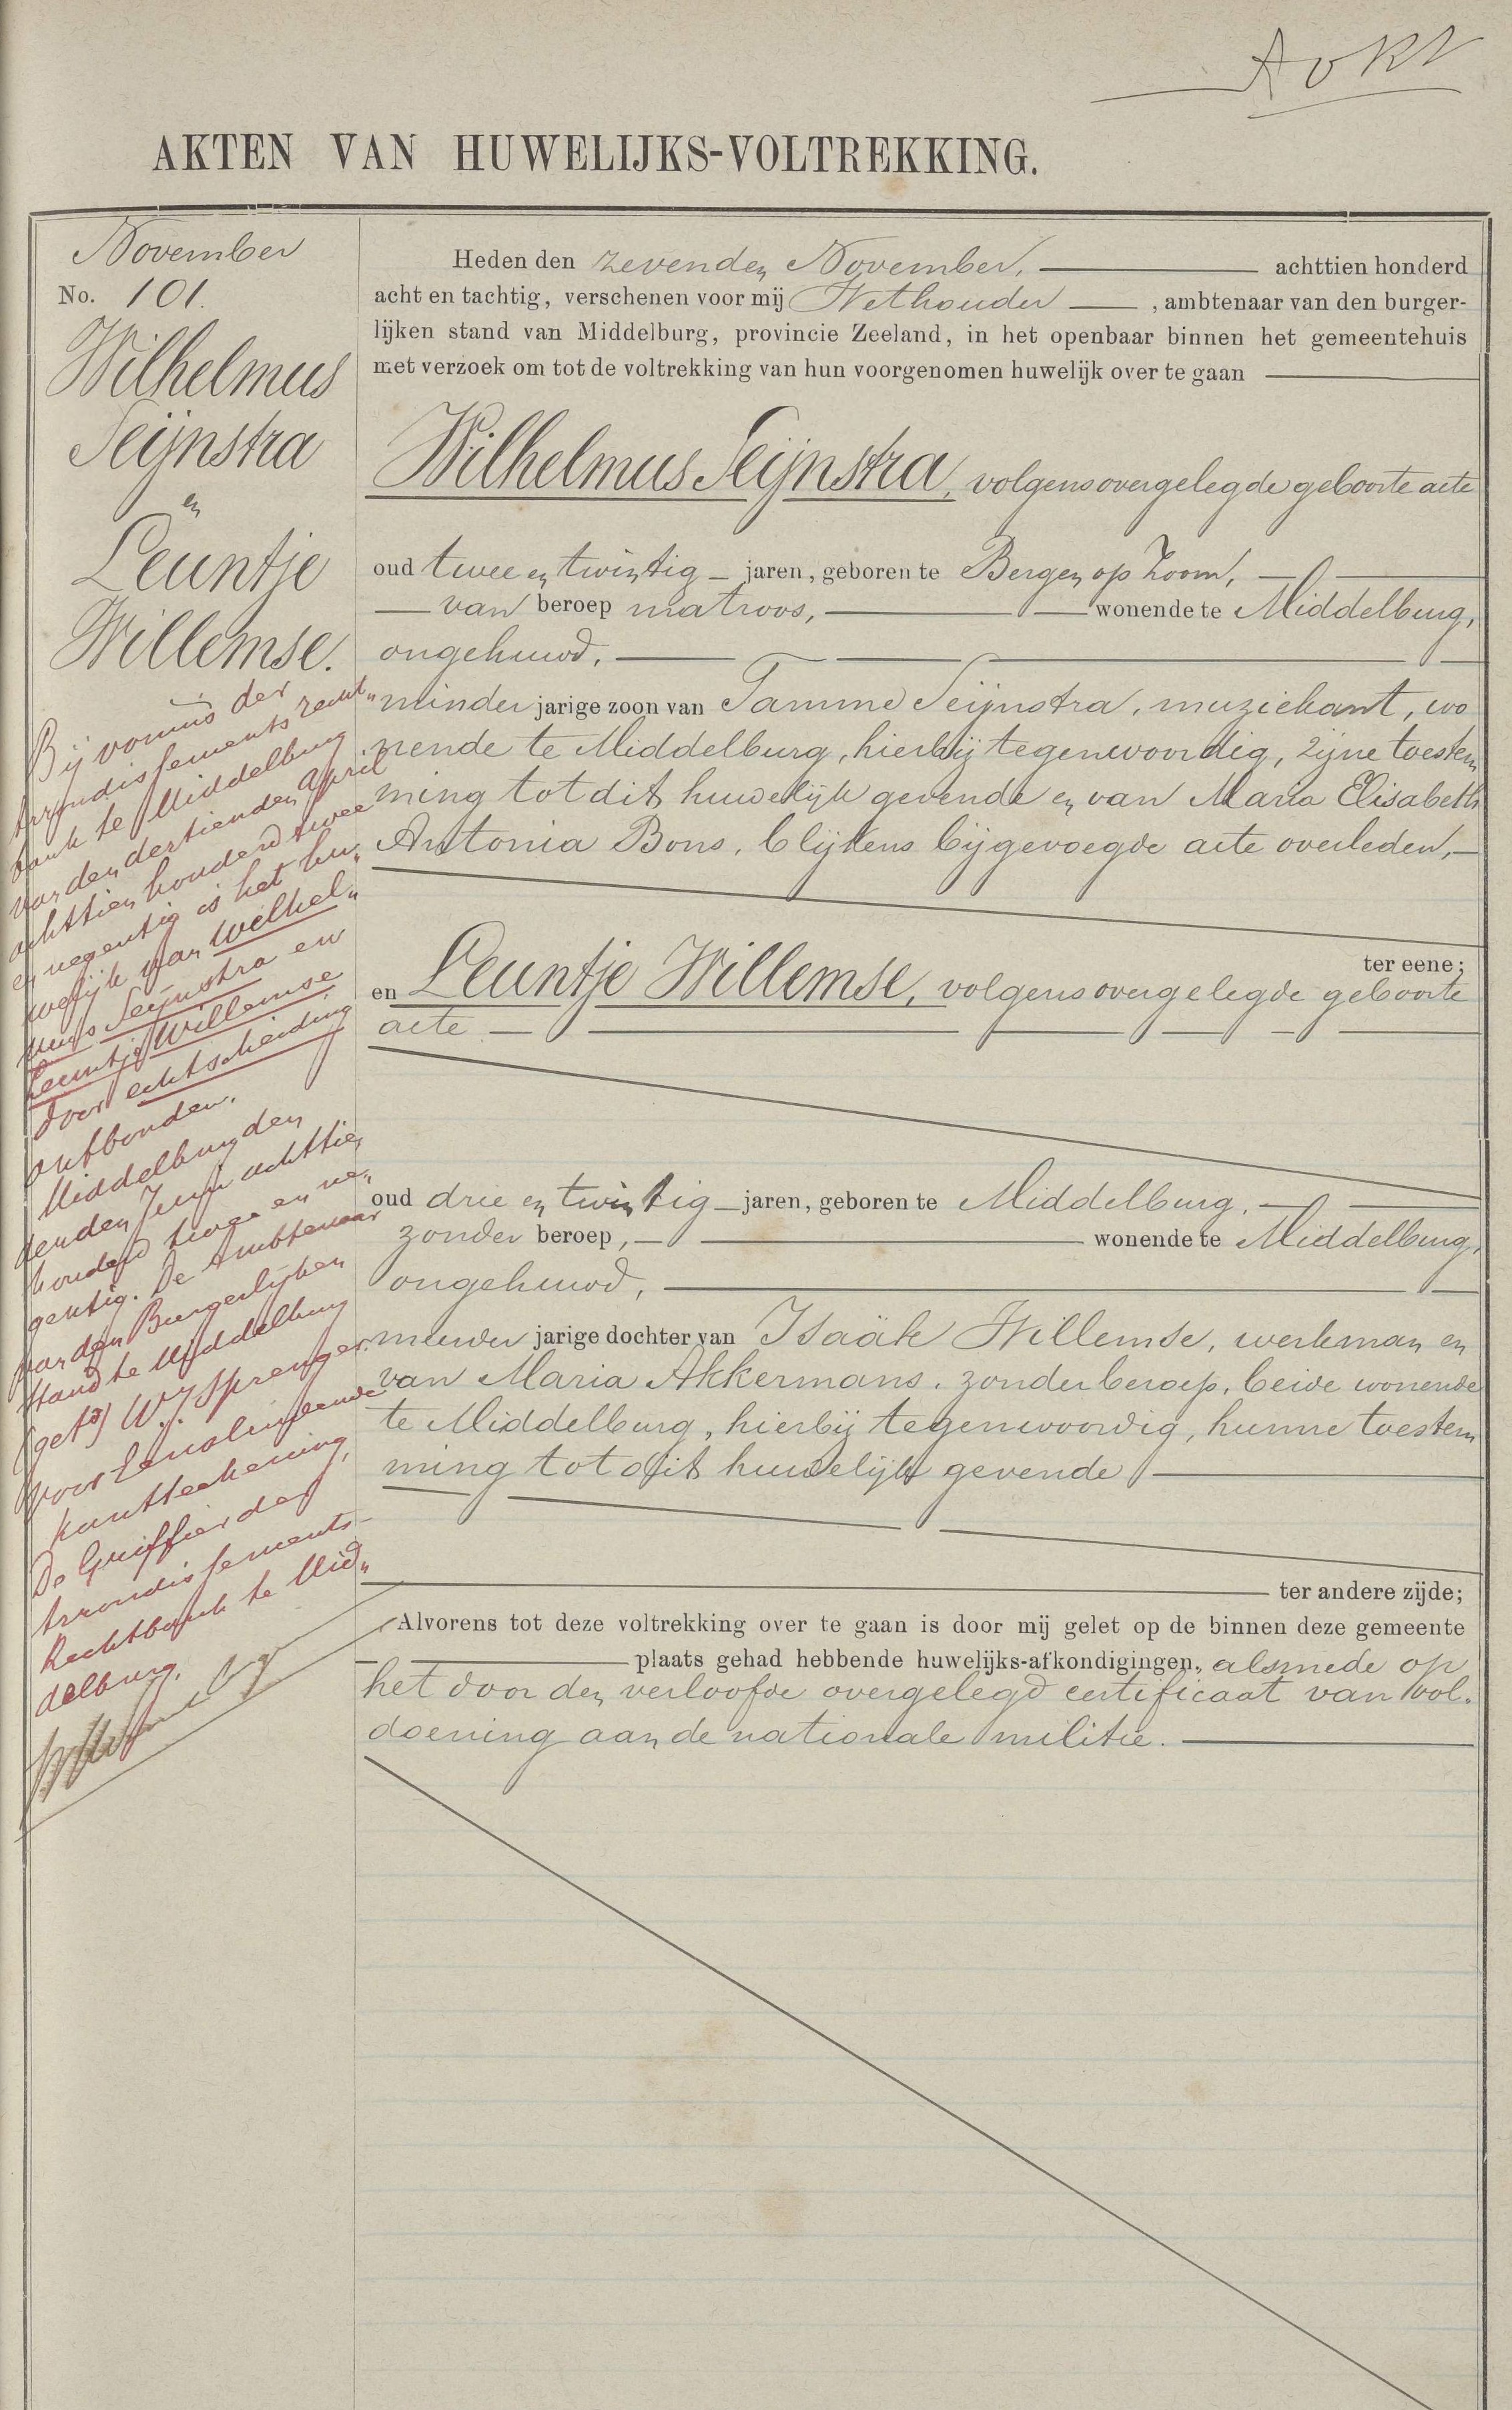 AKTEN VAN HUWELIJKS-VOLTREKKING.
November
No. 101.
Wilhelmus
Seijnstra
en
Leuntje
Willemse.
Bij vonnis der
Arrondissements recht„
bank te Middelburg
van den dertienden April
achttien honderd twee
en negentig is het hu„
welijk van Wilhel„
mus Seijnstra en
Leuntje Willemse
door echtscheiding
ontbonden.
Middelburg den
Juni achttien
honderd twee en ne„
gentig. De Ambtenaar
van den Burgerlijken
Stand te Middelburg
(getd) W.J. Sprenger.
voor eensluidende
kantteekening,
De Griffier der
Arrondissements-
Rechtbank te Mid„
delburg.
Heden den zevenden November, achttien honderd
acht en tachtig, verschenen voor mij Wethouder , ambtenaar van den burger-
lijken stand van Middelburg, provincie Zeeland, in het openbaar binnen het gemeentehuis
met verzoek om tot de voltrekking van hun voorgenomen huwelijk over te gaan
Wilhelmus Seijnstra, volgens overgelegde geboorte acte
oud twee en twintig jaren, geboren te Bergen op Zoom,
van beroep matroos, wonende te Middelburg,
ongehuwd,
minder jarige zoon van Tamme Seijnstra, muziekant, wo
nende te Middelburg, hierbij tegenwoordig, zijne toestem
ming tot dit huwelijk gevende en van Maria Elisabeth
Antonia Bons, blijkens bijgevoegde acte overleden,
ter eene;
en Leuntje Willemse, volgens overgelegde geboorte
acte
oud drie en twintig jaren, geboren te Middelburg,
zonder beroep, wonende te Middelburg,
ongehuwd,
meerder jarige dochter van Isaäk Willemse, werkman en
van Maria Akkermans, zonder beroep, beide wonende
te Middelburg, hierbij tegenwoordig, hunne toestem
ming tot dit huwelijk gevende
ter andere zijde;
Alvorens tot deze voltrekking over te gaan is door mij gelet op de binnen deze gemeente
plaats gehad hebbende huwelijks-afkondigingen, alsmede op
het door den verloofde overgelegd certificaat van vol„
doening aan de nationale militie.